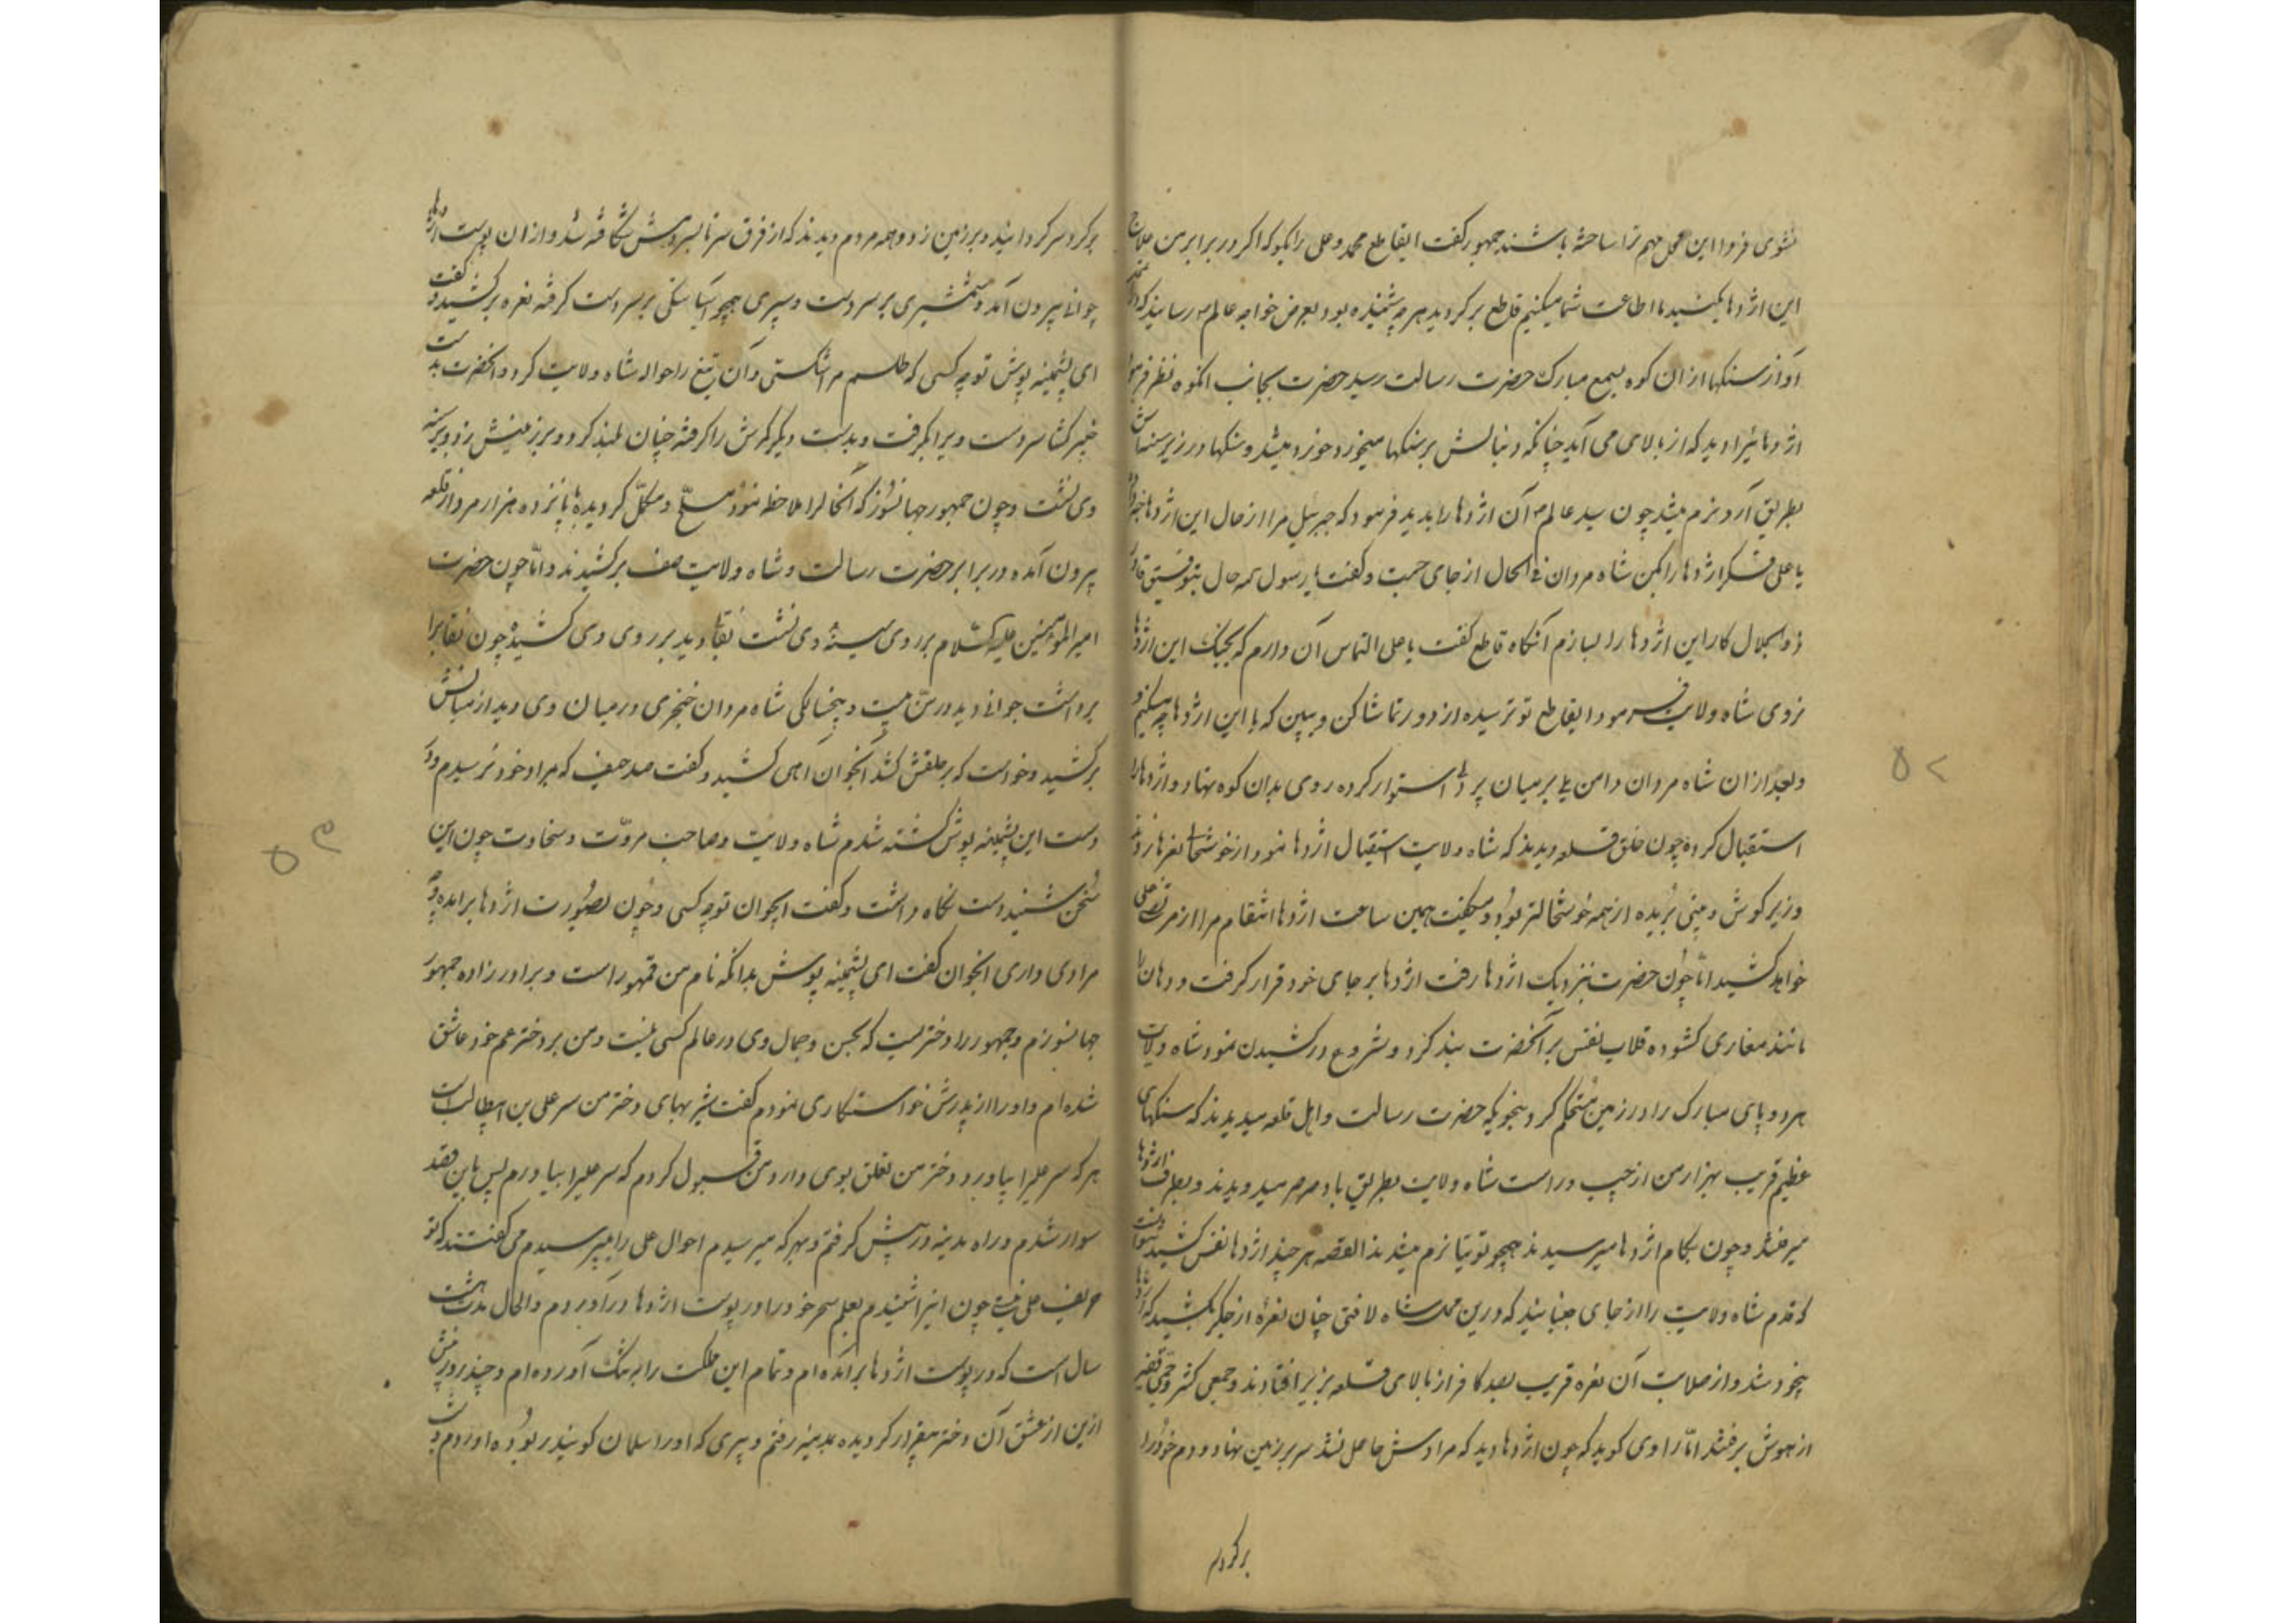 نشوی فردا این محل مهم ترا ساخته باشند جمهور گفت ایقاطع محمد و علی را بگو که اگر در برابر من علاج
این اژدها بکنید ما اطاعت شما میکنیم قاطع برگردید هر چه شنیده بود بعرض خواجه عالم رسانید که
آواز سنکها از ان کوه بسمع مبارک حضرت رسالت رسید حضرت بجانب انکوه نظر فرمود
اژدهائیرا دید که از بالا می آید چنانکه دنبالش بر سنکها میخورد خورد میشد و سنکها در زیر سینه اش
بطریق آرد نرم میشد چون سید عالم آن اژدها را بدید فرمود که جبرئیل مرا از حال این اژدها خبر
یا علی فکر اژدها را بکن شاه مردان فی الحال از جای جست و گفت یا رسول الله حال بتوفیق قادر
ذوالجلال کار این اژدها را بسازم آنگاه قاطع گفت یا علی التماس آن دارم که بجنک این اژدها
نروی شاه ولایت فرمود ایقاطع تو ترسیده از دور تماشا کن و ببین که با این اژدها چه میکنم
و بعد از ان شاه مردان دامن بر میان استوار کرده روی بدان کوه نهاد و اژدها را
استقبال کرده چون خلق قلعه دیدند که شاه ولایت استقبال اژدها نمود از خوشحالی نعرها زدند
وزیر گوش و بینی بریده از همه خوشحالتر بود و میگفت همین ساعت اژدها انتقام مرا از مرتضی علی
خواهد کشید امّا چون حضرت بنزدیک اژدها رفت اژدها بر جای خود قرار گرفت و دهان را
مانند مغاری کشوده قلاب نفس بر آنحضرت بند کرد و شروع در کشیدن نمود شاه ولایت
هر دو پای مبارک را در زمین مستحکم کرد بنحویکه حضرت رسالت و اهل قلعه میدیدند که سنکهای
عظیم قریب بهزار من از چپ و راست شاه ولایت بطریق باد صرصر میدویدند و بطرف اژدها
میرفتند و چون بکام اژدها میرسیدند همچو توتیا نرم میشدند القصه هر چند اژدها نفس کشید نتوانست
که قدم شاه ولایت را از جای جنباند که درین محل شاه لا فتی چنان نعرهٔ از جکر بکشید که اژدها
بیخود شد و از صلابت آن نعره قریب بصد کافر از بالای قلعه بزیر افتادند و جمعی کثیر و جمی غفیر
از هوش برفتند امّا راوی گوید که چون اژدها دید که مرادش حاصل نشد سر بر زمین نهاد و دم خود را
برگرد
۵۲
بر گرد سر گردانید و بر زمین زد و همه مردم دیدند که از فرق سر تا بسر دمش شکافته شد و از ان پوست اژدها
جوانی بیرون آمد و شمشیری بر سر دست و سپری همچو آسیا سنکی بر سر دست گرفته نعره بر کشید و گفت
ای پشمینه پوش تو چه کسی که طلسم مرا شکستی و آن تیغ را حواله شاه ولایت کرد و آنحضرت بدست
خیبر کشا سر دست ویرا بگرفت و بدست دیگر کمرش را گرفته چنان بلند کرد و بر زمینش زد و بر سینه
وی نشست و چون جمهور جهانسوز که آنحال را ملاحظه نمود مسلّح و مکمّل گردیده با پانزده هزار مرد از قلعه
بیرون آمده در برابر حضرت رسالت و شاه ولایت صف بر کشیدند و امّا چون حضرت
امیر المؤمنین علیه السّلام بر روی سینهٔ وی نشست نقابی دید بر روی وی کشیده چون نقاب را
برداشت جوانی دید در سنّ بیست و پنجسالگی شاه مردان خنجری در میان وی دید از میانش
بر کشید و خواست که بر حلقش کشد آنجوان آهی کشید و گفت صد حیف که بمراد خود نرسیدم و در
دست این پشمینه پوش کشته شدم شاه ولایت و صاحب مروّت و سخاوت چون این
سخن شنید دست نگاه داشت و گفت ایجوان تو چه کسی و چون بصورت اژدها برآمده و چه
مرادی داری آنجوان گفت ای پشمینه پوش بدانکه نام من قمهور است و برادرزاده جمهور
جهانسوزم و جمهور را دختریست که بحسن و جمال وی در عالم کسی نیست و من بر دختر عم خود عاشق
شده ام و او را از پدرش خواستکاری نمودم گفت شیر بهای دختر من سر علی بن ابیطالب است
هر که سر علیرا بیاورد دختر من تعلق بوی دارد من قبول کردم که سر علیرا بیاورم پس باین قصد
سوار شدم و راه مدینه در پیش گرفتم و بهر که میرسیدم احوال علی را میپرسیدم می گفتند که تو
حریف علی نیستی چون اینرا شنیدم بعلم سحر خود را در پوست اژدها در آوردم و الحال مدت هشت
سال است که در پوست اژدها برآمده ام و تمام این مملکت را به تنک آورده ام و چند روز پیش
ازین از عشق آن دختر بیقرار گردیده بمدینه رفتم و پیری که او را سلمان گویند ربوده آوردم و
۵۳